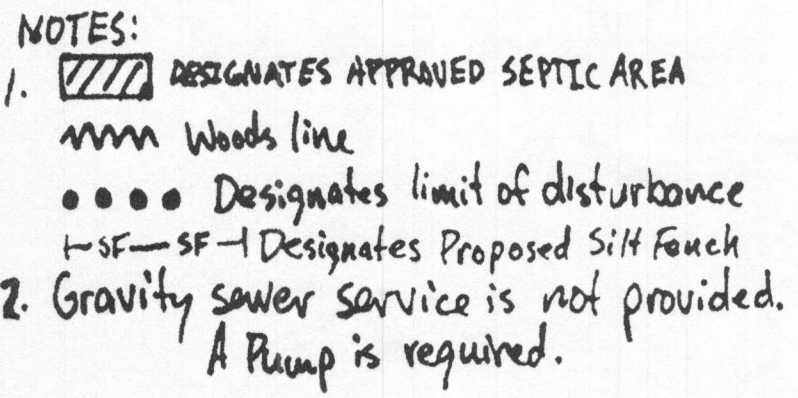 NOTES:
1. DESIGNATES APPROVED SEPTIC AREA
Woods line
Designates limit of disturbance
SF SF Designates Proposed Silt Fench
2. Gravity sewer service is not provided.
A Pump is required.